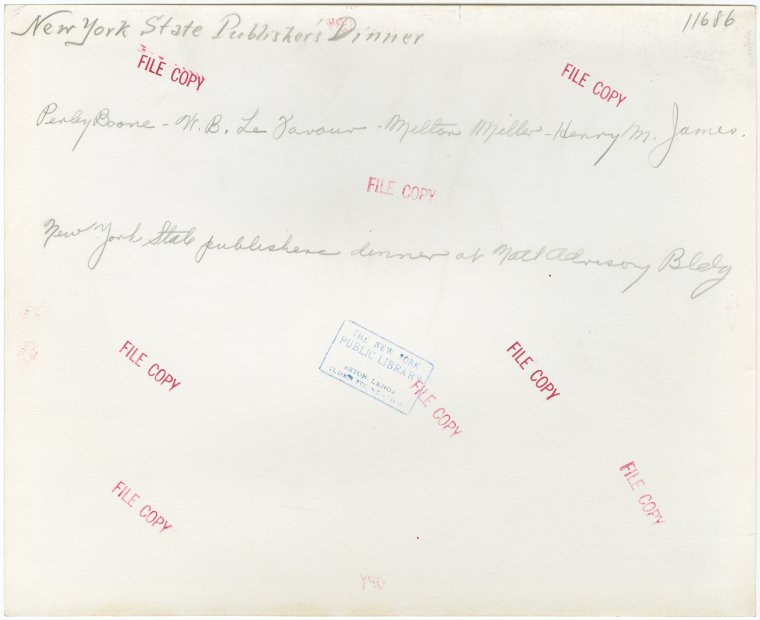 New York State Publisher's Dinner
11686
FILE COPY
FILE COPY
Perley Boone - W. B. Le Favour - Milton Miller - Henry M. James.
FILE COPY
New York State publishers dinner at Natl Advisory Bldg
THE NEW YORK
PUBLIC LIBRARY
ASTOR, LENOX
FILE COPY
FILE COPY
FILE COPY
FILE COPY
FILE COPY